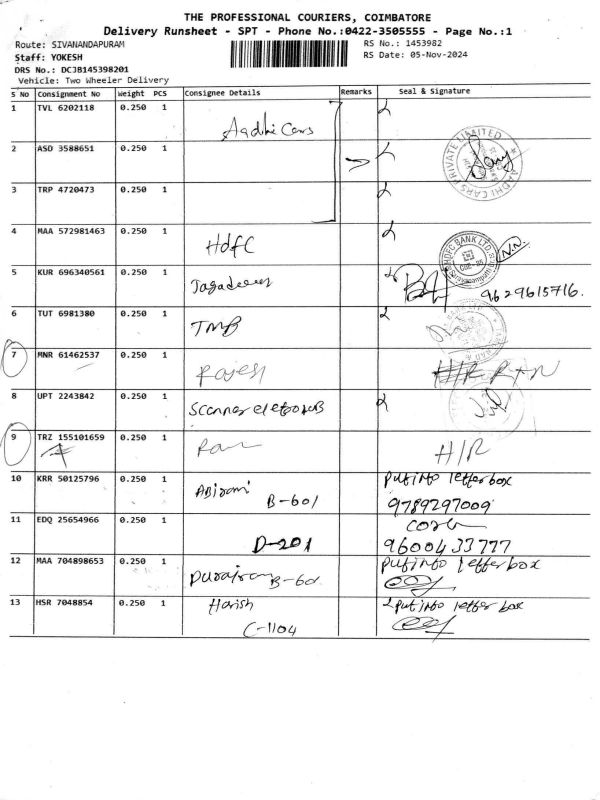 THE PROFESSIONAL COURIERS, COIMBATORE
Delivery Runsheet - SPT - Phone No.:0422-3505555 - Page No.:1
Route: SIVANANDAPURAM
RS No.: 1453982
Staff: YOKESH
RS Date: 05-Nov-2024
DRS No.: DCJB145398201
Vehicle: Two Wheeler Delivery
S No Consignment No Weight PCS Consignee Details Remarks Seal & Signature
1 TVL 6202118 0.250 1 Aadhi Cars
2 ASD 3588651 0.250 1
AADHI CARS PRIVATE LIMITED
3 TRP 4720473 0.250 1
4 MAA 572981463 0.250 1 HdfC
HDFC BANK LTD
5 KUR 696340561 0.250 1 Jagadeesh 9629615716.
6 TUT 6981380 0.250 1 TMB
7 MNR 61462537 0.250 1 Rajesh RTN
8 UPT 2243842 0.250 1 Scanner
9 TRZ 155101659 0.250 1 H/R
10 KRR 50125796 0.250 1 Abirami B-601 put into letter box
9789297009
11 EDQ 25654966 0.250 1 D-201
9600433777
12 MAA 704898653 0.250 1 Durairam B-601 put into letter box
13 HSR 7048854 0.250 1 Harish put into letter box
C-1104